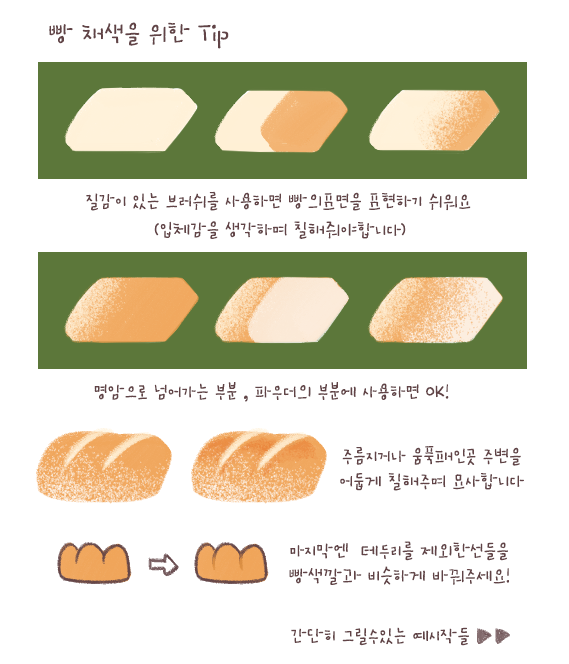 빵 채색을 위한 Tip
질감이 있는 브러쉬를 사용하면 빵의표면을 표현하기 쉬워요
(입체감을 생각하며 칠해줘야합니다)
명암으로 넘어가는 부분, 파우더의 부분에 사용하면 OK!
주름지거나 움푹패인곳 주변을
어둡게 칠해주며 묘사합니다
마지막엔 테두리를 제외한선들을
빵색깔과 비슷하게 바꿔주세요!
간단히 그릴수있는 예시작들